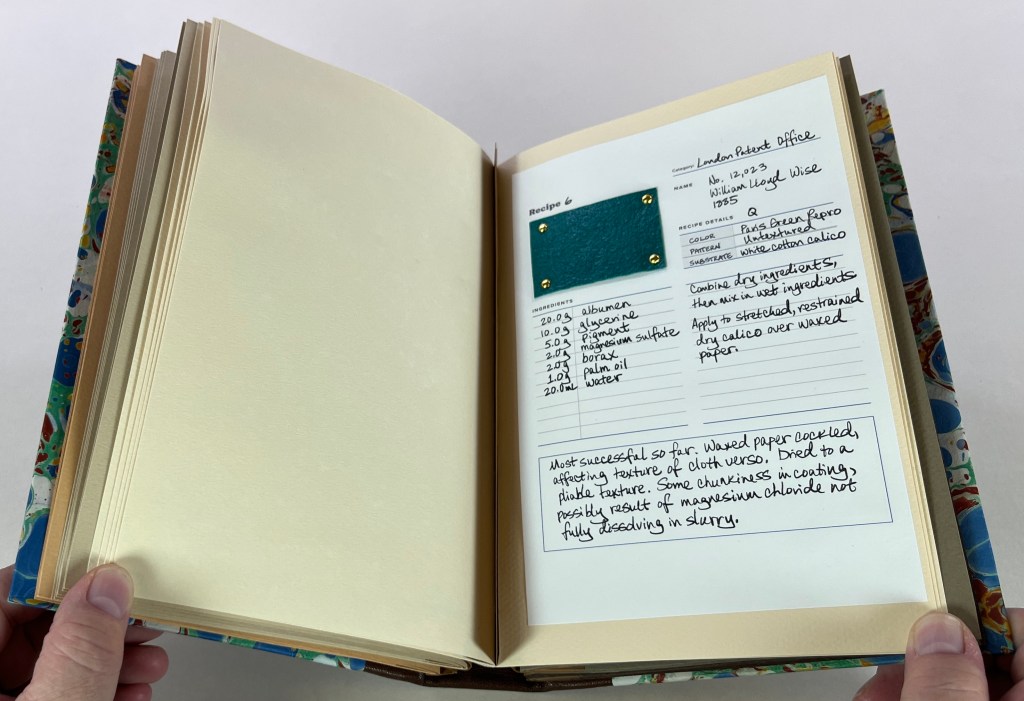 Category: London Patent Office
NAME No. 12,023
William Lloyd Wise
1885
Recipe 6
RECIPE DETAILS Q
COLOR Paris Green Repro
PATTERN Untextured
SUBSTRATE White cotton calico
INGREDIENTS
20.0g albumen
10.0g glycerine
5.0g Pigment
2.0g magnesium sulfate
2.0g borax
1.0g palm oil
20.0mL water
Combine dry ingredients,
then mix in wet ingredients
Apply to stretched, restrained
dry calico over waxed
paper.
Most successful so far. Waxed paper cockled,
affecting texture of cloth verso. Dried to a
pliable texture. Some chunkiness in coating,
possibly result of magnesium chloride not
fully dissolving in slurry.